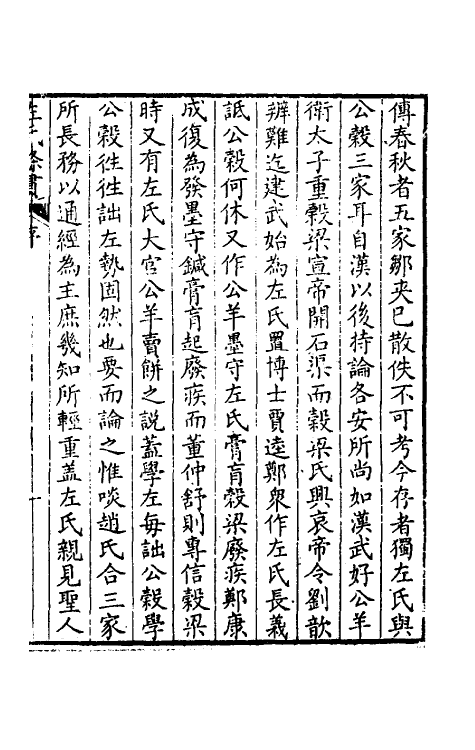 傳春秋者五家鄒夾已散佚不可考今存者獨左氏與
公穀三家耳自漢以後持論各安所尚如漢武好公羊
衛太子重穀梁宣帝開石渠而穀梁氏興哀帝令劉歆
辨難迄建武始為左氏置博士賈逵鄭衆作左氏長義
詆公穀何休又作公羊墨守左氏膏肓穀梁廢疾鄭康
成復為發墨守鍼膏肓起廢疾而董仲舒則專信穀梁
時又有左氏大官公羊賣餅之說蓋學左每詘公穀學
公穀徃徃詘左勢固然也要而論之惟啖趙氏合三家
所長務以通經為主庶幾知所輕重盖左氏親見聖人
序
一